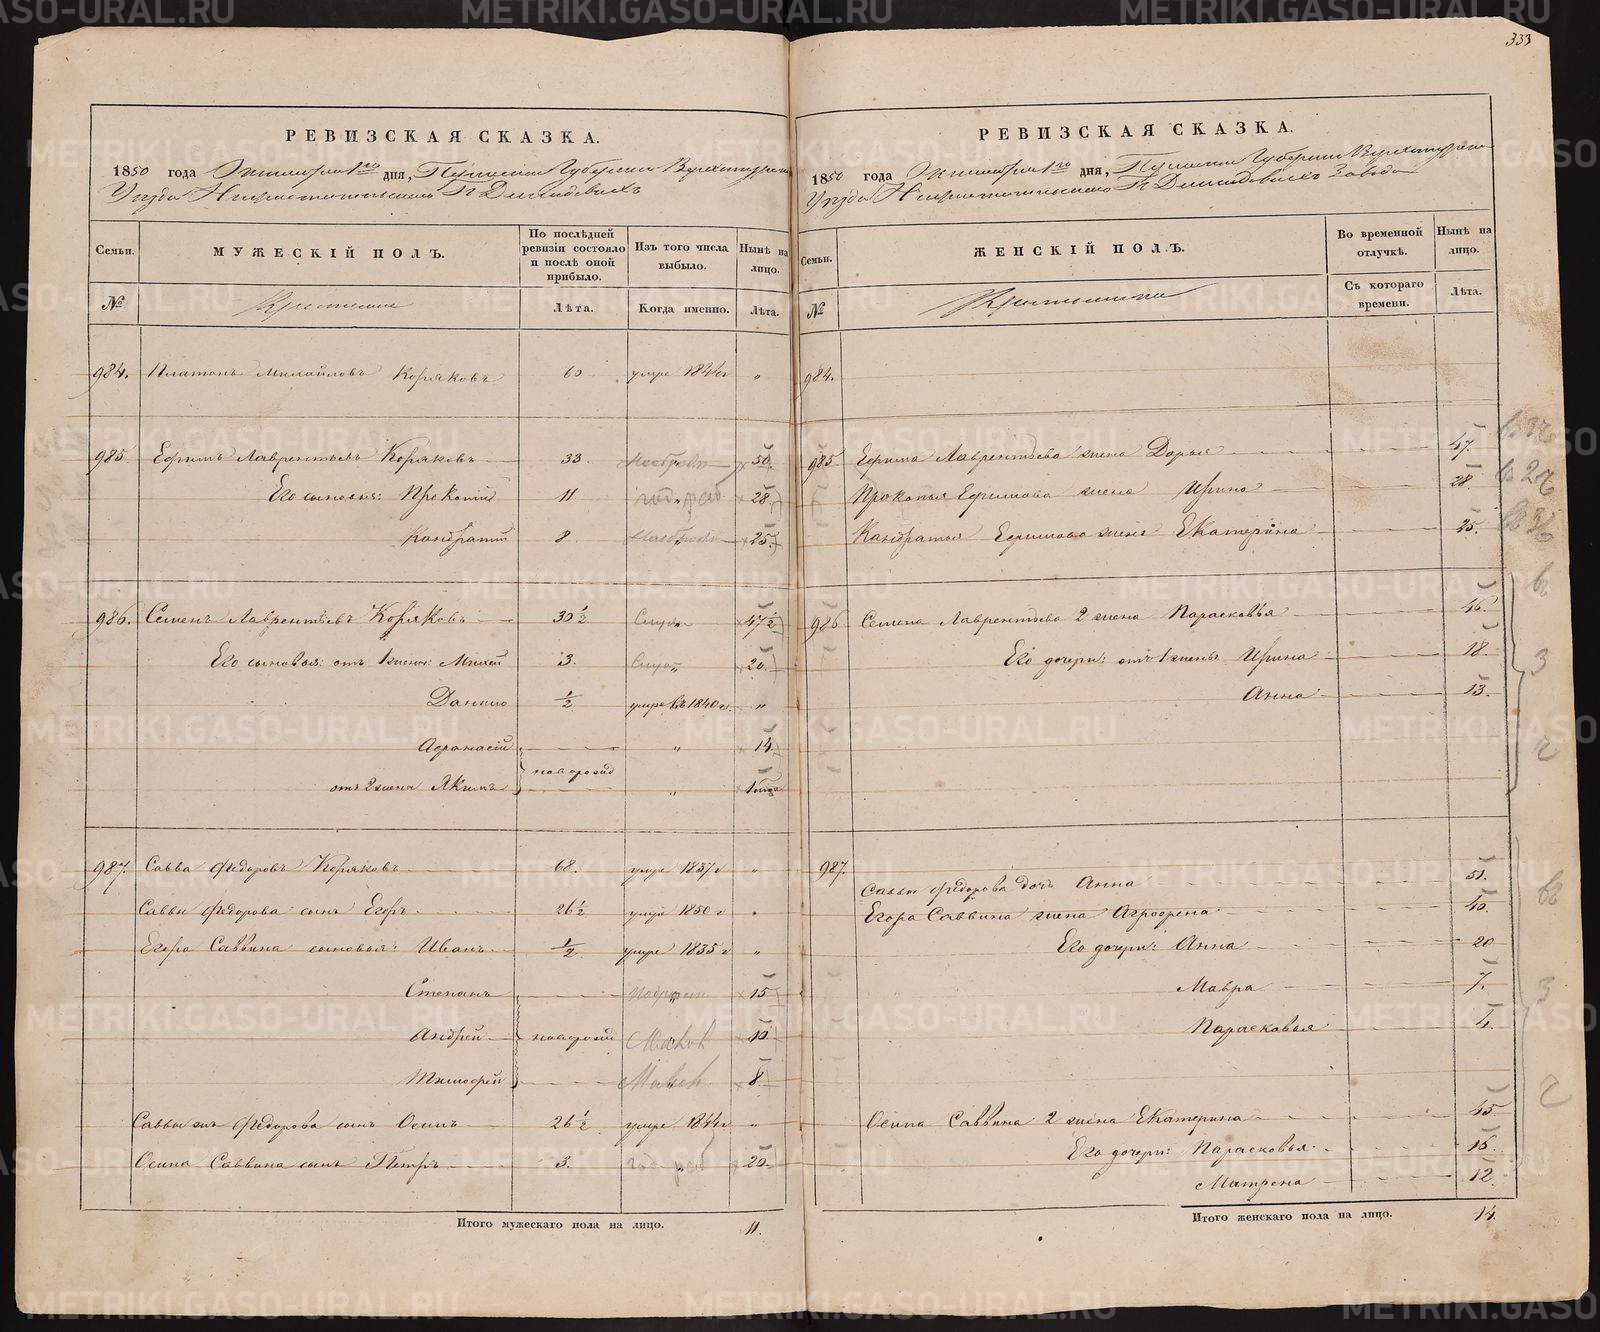 333
РЕВИЗСКАЯ СКАЗКА.
1850 года Октября 1го дня, Пермской Губернии Верхотурскаго
Уезда Нижнетагильскаго Гг Демидовыхъ
Семьи. МУЖЕСКІЙ ПОЛЪ. По послѣдней ревизіи состояло и послѣ оной прибыло. Изъ того числа выбыло. Нынѣ на лицо.
№ Крестьяне Лѣта. Когда именно. Лѣта.
984. Платонъ Михайловъ Коряковъ 60 умре 1844 г "
985. Ефимъ Лаврентьевъ Коряковъ 33. 50.
Его сыновья: Прокопій 11 28.
Кондратій 8. 25.
986. Семенъ Лаврентьевъ Коряковъ 30 1/2 47 1/2
Его сыновья: отъ 1 жены: Михей 3. 20.
Данило 1/2 умре въ 1840 г. "
Афонасій " 14
новорожд
отъ 2 жены Якимъ " 1
987. Савва Федоровъ Коряковъ 68. умре 1837 г "
Саввы Федорова сынъ Егоръ 26 1/2 умре 1850 г "
Егора Саввина сыновья: Иванъ 1/2 умре 1835 г "
Степанъ 15
Андрей новорожд 10
Тимофей 8.
Саввы жъ Федорова сынъ Осипъ 26 1/2 умре 1844 г "
Осипа Саввина сынъ Петръ 3. 20.
Итого мужескаго пола на лицо. 11.
РЕВИЗСКАЯ СКАЗКА.
1850 года Октября 1го дня, Пермской Губернии Верхотурскаго
Уезда Нижнетагильскаго Гг Демидовыхъ Завода
Семьи. ЖЕНСКІЙ ПОЛЪ. Во временной отлучкѣ. Нынѣ на лицо.
№ Крестьянки Съ котораго времени. Лѣта.
984.
985 Ефима Лаврентьева жена Дарья 47.
Прокопья Ефимова жена Ирина 28.
Кондратья Ефимова жена Екатерина 25.
986 Семена Лаврентьева 2 жена Парасковья 46.
Его дочери: отъ 1 жены Ирина 18.
Анна 13.
987.
Саввы Федорова дочь Анна 51.
Егора Саввина жена Агрофена 40.
Его дочери: Анна 20
Мавра 7.
Парасковья 4.
Осипа Саввина 2 жена Екатерина 45
Его дочери: Парасковья 16.
Матрена 12.
Итого женскаго пола на лицо. 14.
METRIKI.GASO-URAL.RU